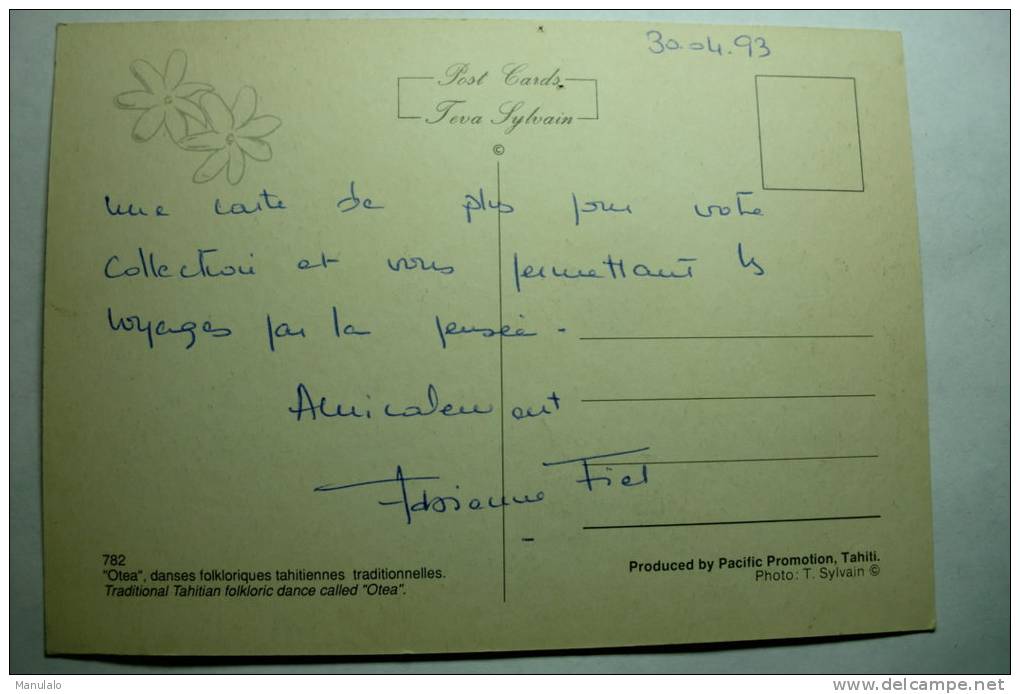 30.04.93
Post Cards
Teva Sylvain
©
une carte de plus pour votre
collection et vous permettant les
voyages par la pensée.
Amicalement
Adrienne
782
"Otea", danses folkloriques tahitiennes traditionnelles.
Traditional Tahitian folkloric dance called "Otea".
Produced by Pacific Promotion, Tahiti.
Photo: T. Sylvain ©
Manulalo
www.delcampe.net